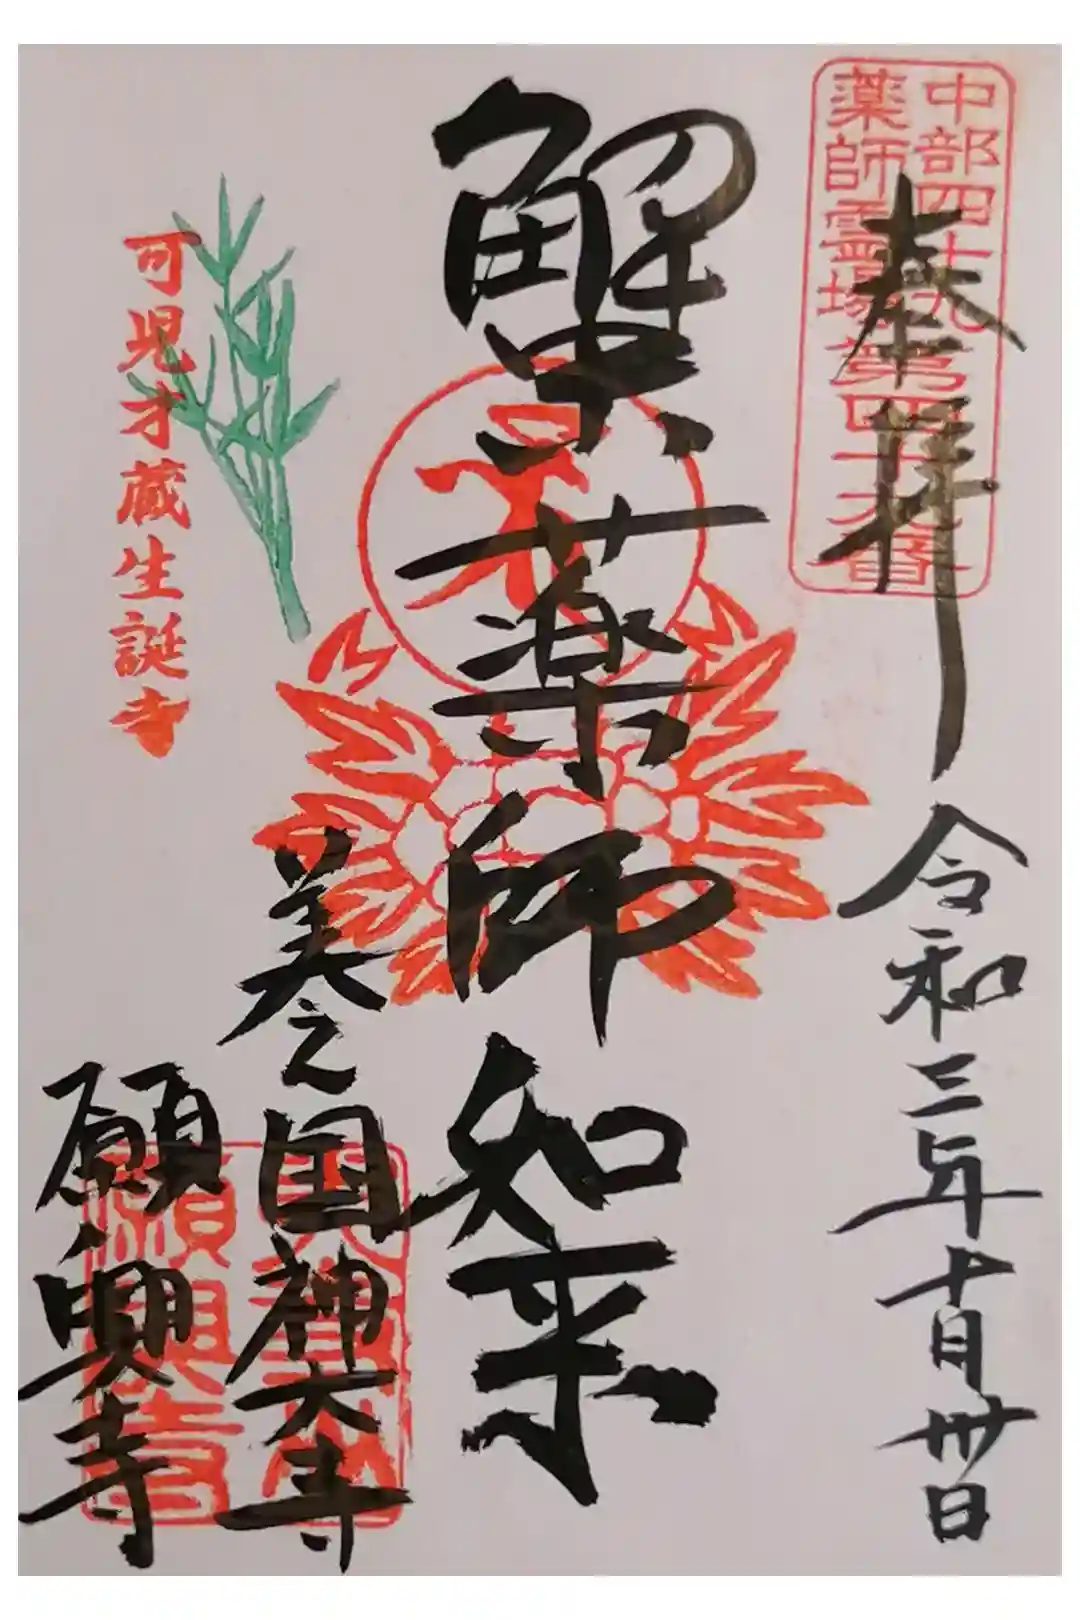 中部四十九
薬師霊場第四十九番
奉拝
令和三年十月卅日
蟹薬師如来
美之国神大寺
願興寺
可児才蔵生誕寺
願興寺